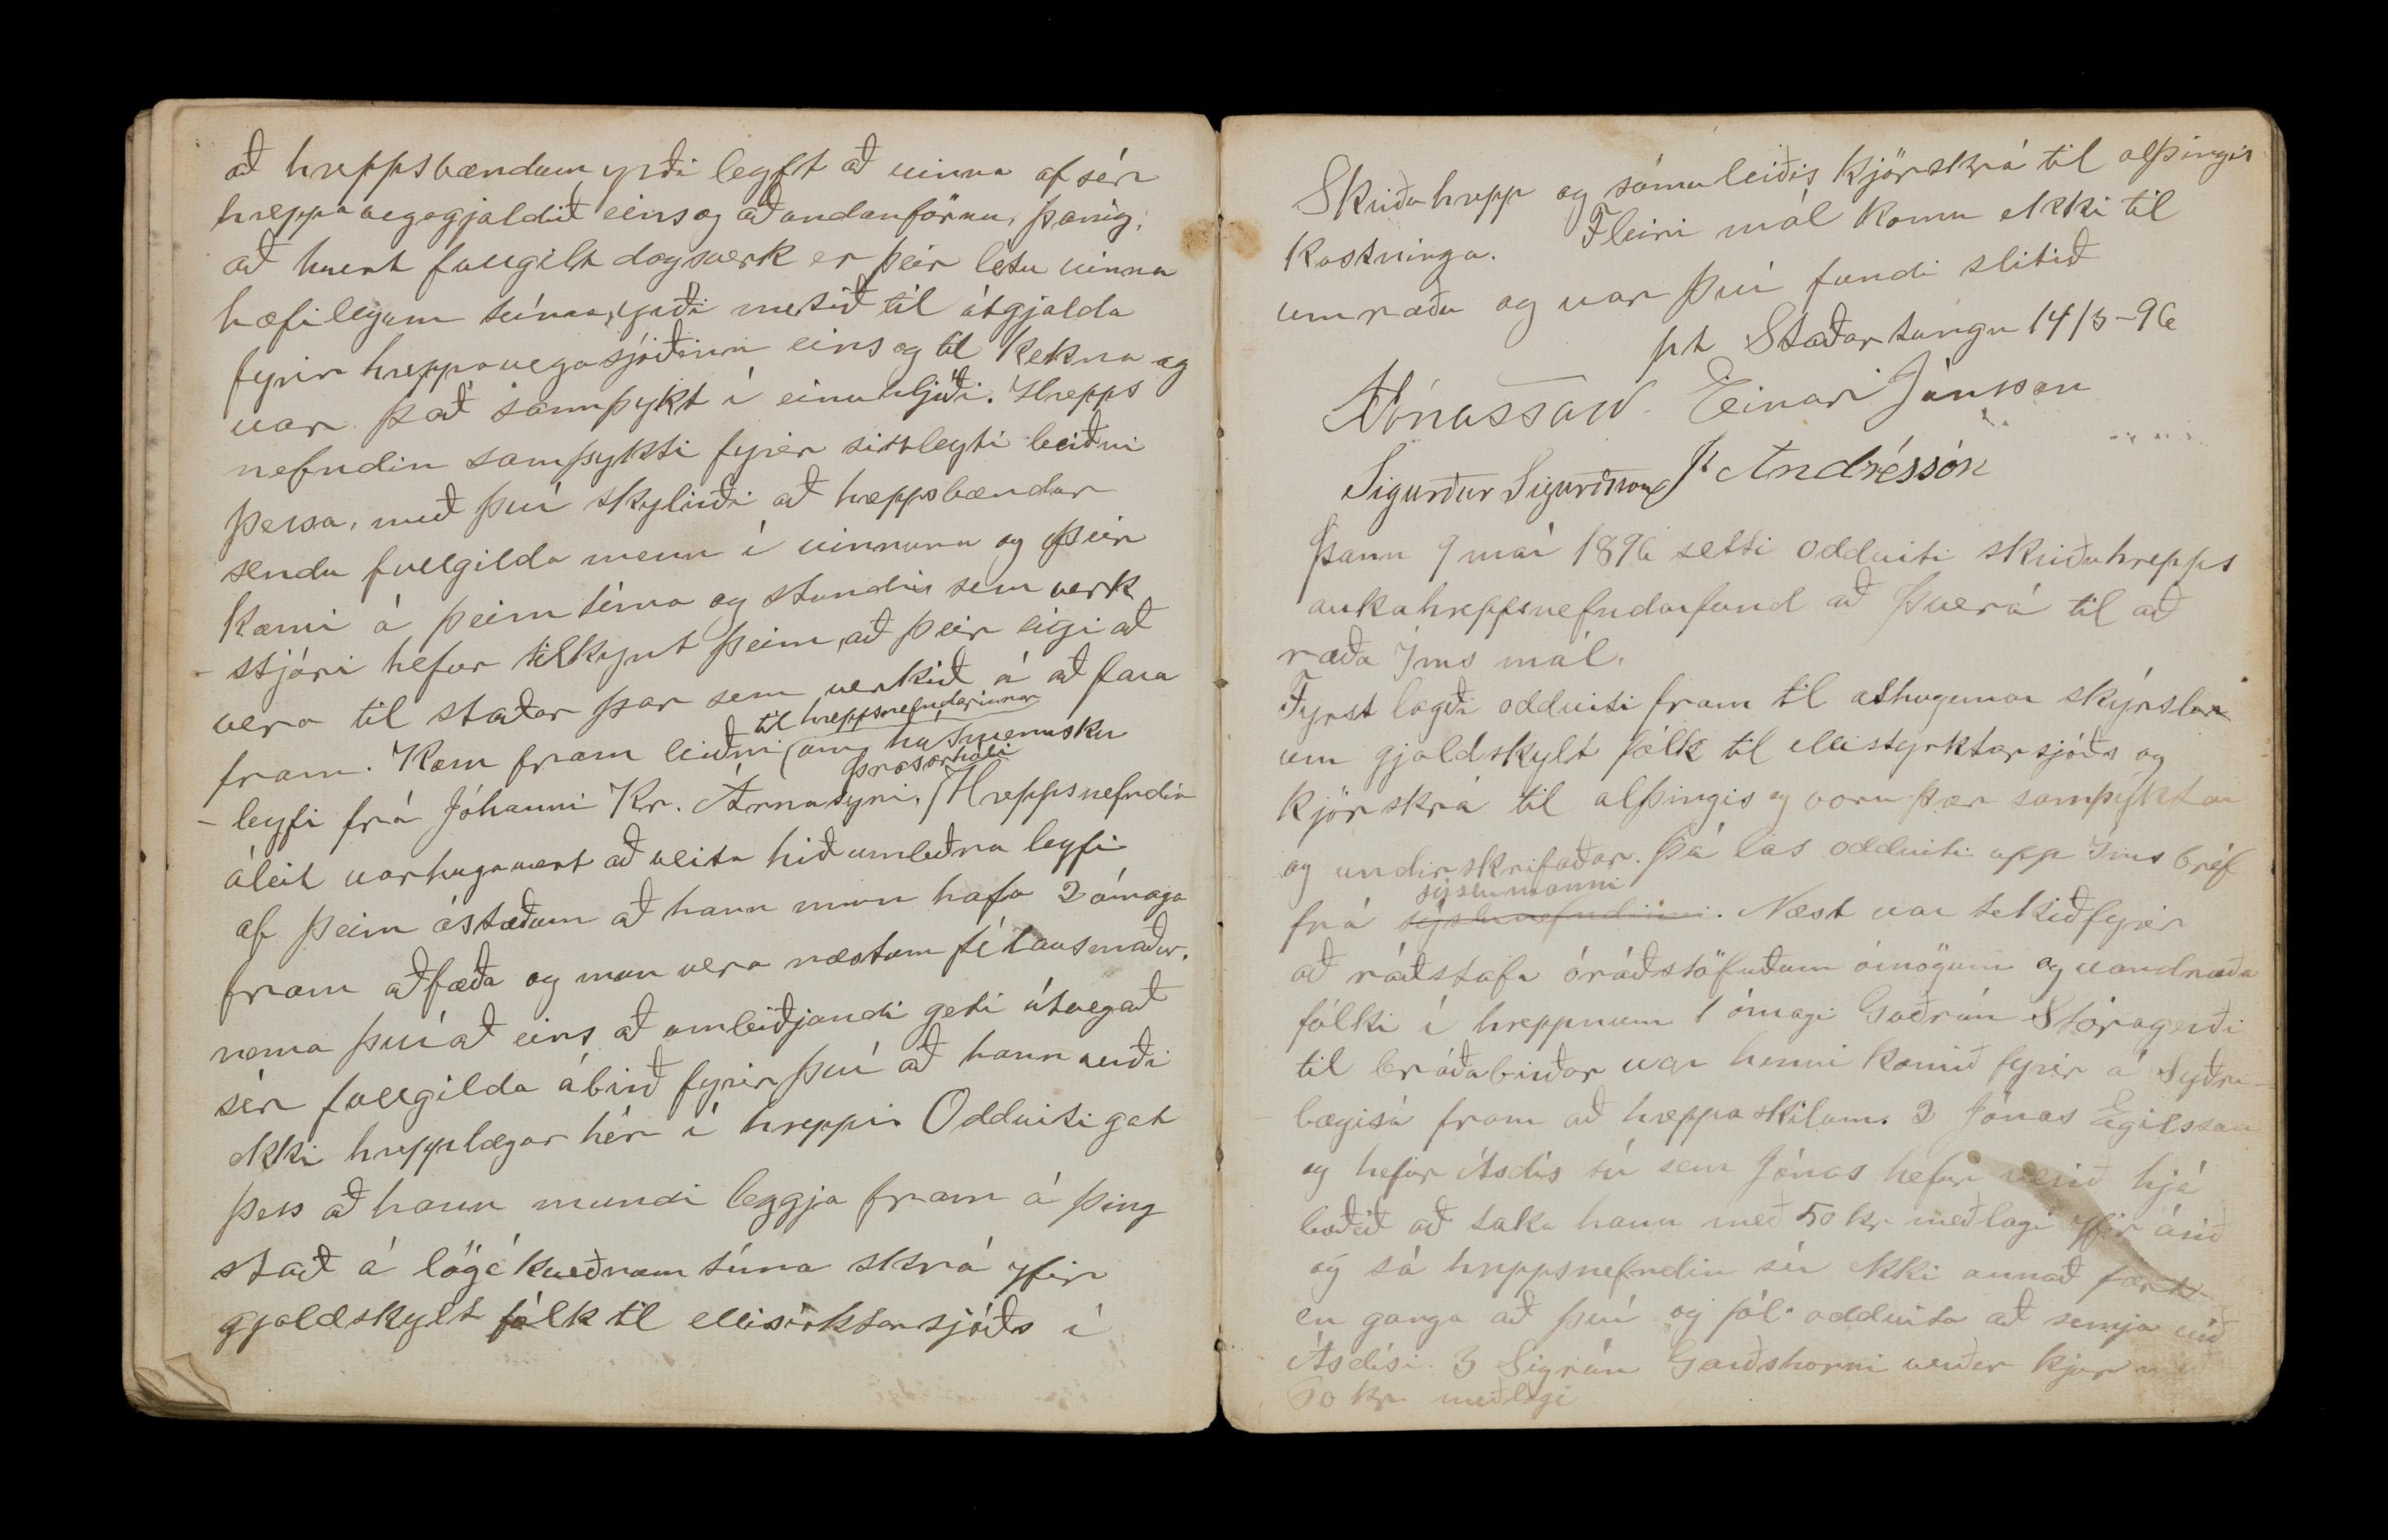 að hreppsbændum yrði leyft að vinna af sér
hreppavegagjaldið eins og að undanförnu, þanig,
að hvert fullgilt dagsverk er þeir létu vinna
hæfilegum tíma, yrði metið til útgjalda
fyrir hreppavegasjóðinn eins og til tekna og
var það samþykt í einu hljóði. Hrepps
nefndin samþykti fyrir sittleyti beiðni
þessa, með því skylirði að hreppsbændur
sendu fullgilda menn í vinnuna og þeir
kæmi á þeim tíma og stundu sem verk
- stjóri hefur tilkynt þeim, að þeir eigi að
vera til staðar þar sem verkið á að fara
fram. Kom fram beiðni til hreppsnefndarinnar um húsmensku
- leyfi frá Jóhanni Kr. Árnasyni, Þrasarhóli Hreppsnefndin
áleit varhugavert að veita hið umbeðna leyfi
af þeim ástæðum að hann mun hafa 2 ómaga
fram að fæða og mun vera næstum félaus maður,
nema því að eins að umbeiðjandi geti útvegað
sér fullgilda ábirð fyrir því að hann verði
ekki hrepplægur hér í hreppi. Oddviti gat
þess að hann mundi leggja fram á þing
stað á lögákveðnum tíma skrá yfir
gjaldskylt fólk til ellisirktarsjóðs í
Skriðuhrepp og sömuleiðis kjörskrá til alþingis
kostninga. Fleiri mál komu ekki til
umræðu og var því fundi slitið
pt Staðartungu 14/3-96
Jónasson Einar Jónsson
Sigurður Sigurðsson J. Andrésson
Þann 9 maí 1896 setti oddviti skriðuhrepps
aukahreppsnefndarfund að Þverá til að
ræða Ýms mál.
Fyrst lagði oddviti fram til athugunar skýrslur
um gjaldskylt fólk til ellistyrktarsjóðs og
kjörskrá til alþingis og voru þær samþyktar
og undirskrifaðar. Þá las oddviti upp Ýms bréf
frá sýslunefndinni sýslumanni. Næst var tekið fyrir
að ráðstafa óráðstöfuðum ómögum og vandræða
fólki í hreppnum 1 ómagi Guðrún Stóragerði
til bráðabirðar var henni komið fyrir á Syðri-
bægisá fram að hreppaskilum. 2 Jónas Egilsson
og hefur Ásdís sú sem Jónas hefur verið hjá
boðið að taka hann með 50 kr meðlagi yfir árið
og sá hreppsnefndin sér ekki annað fært
en ganga að því og fól oddvita að semja við
Ásdísi. 3 Sigrún Garðshorni verður kjur með
60 kr meðlagi